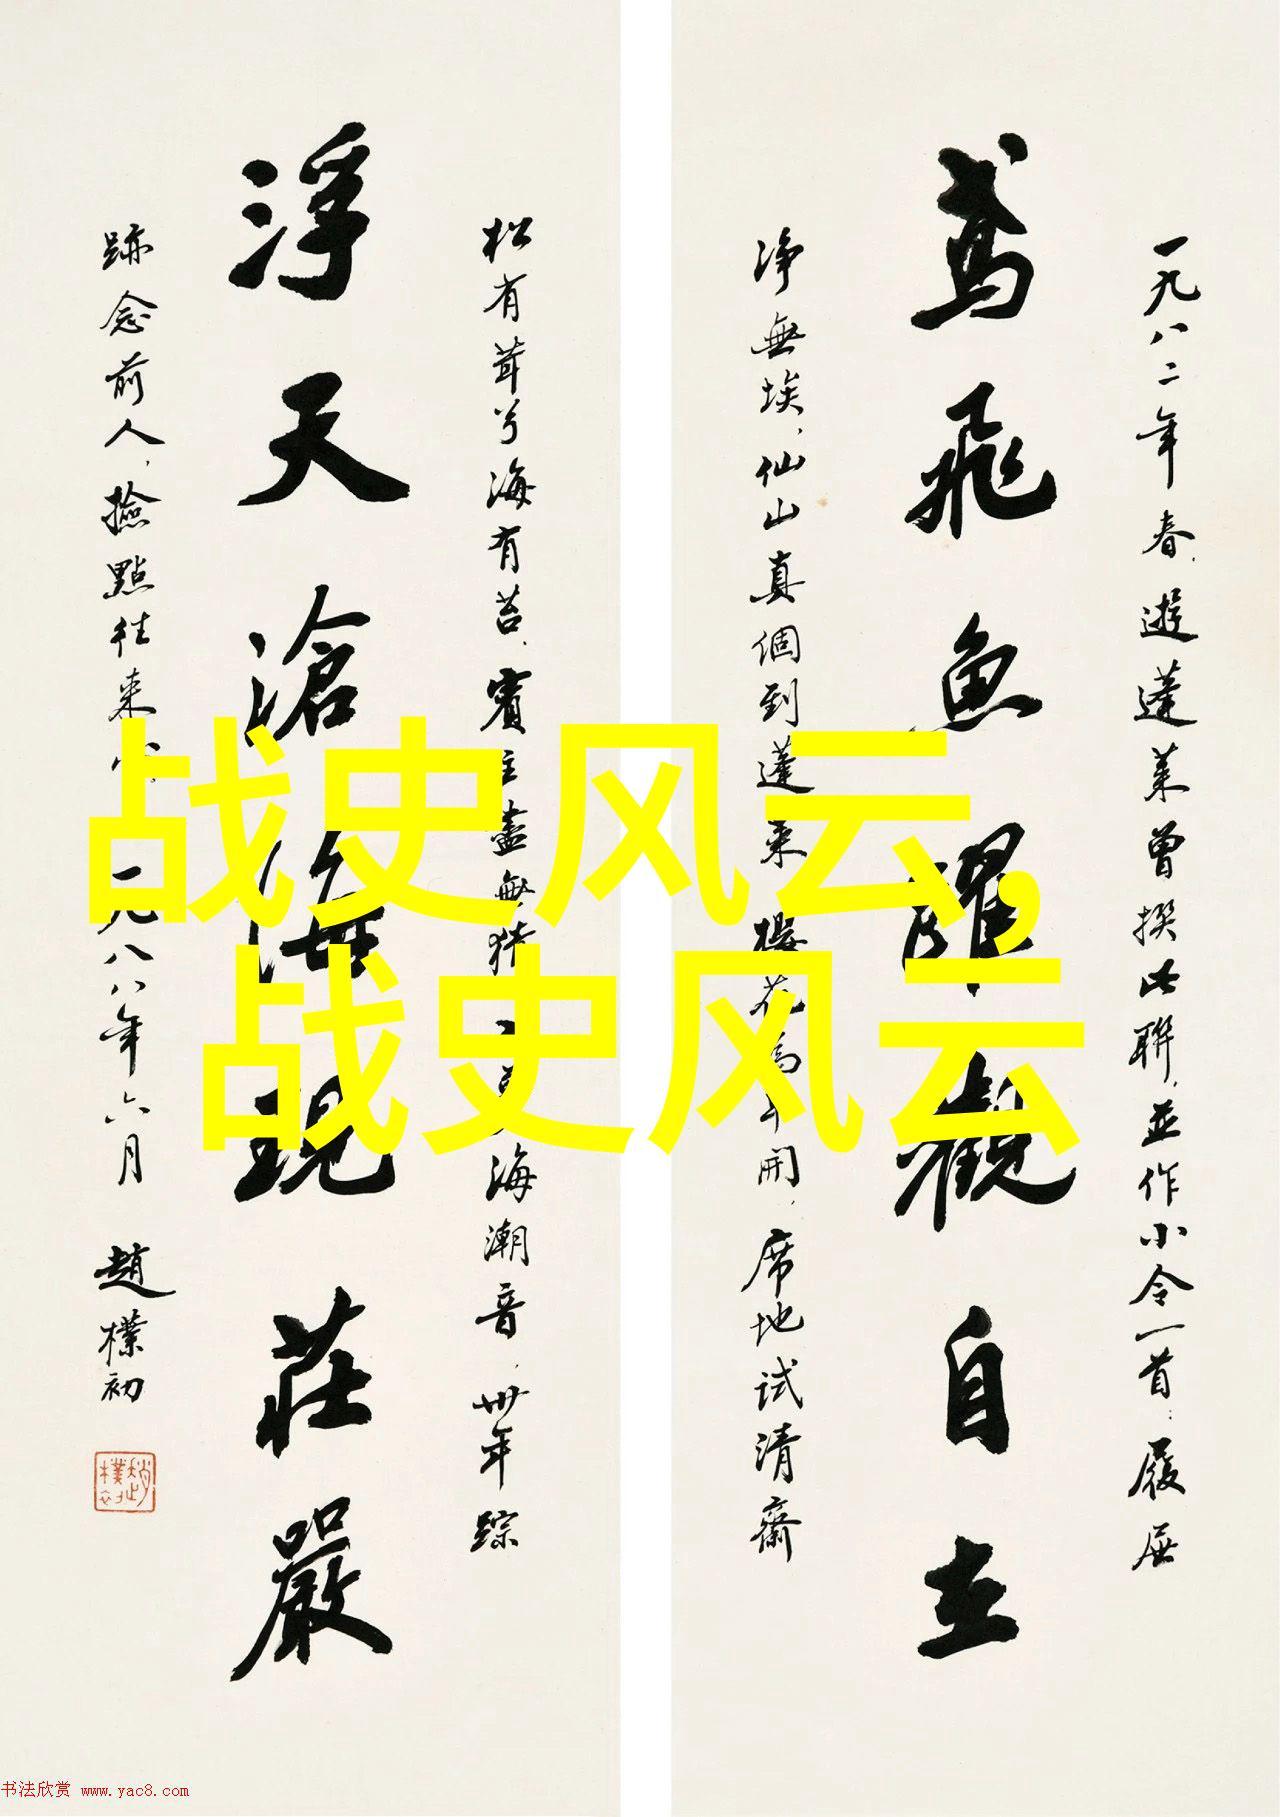 一九八二年春，遊蓬萊曾撰此聯，並作小令一首：履
鳶飛魚躍觀自在
净無埃，仙山真個到蓬来，櫻花為開，席地試清齋
松有茸兮海有苔，賓主盡無猜，海潮音，卅年踪
淨天滄海現莊嚴
跡念前人，撿點往来 一九八八年六月 趙樸初
趙樸初
战史风云，
战史风云
书法欣赏 www.yac8.com